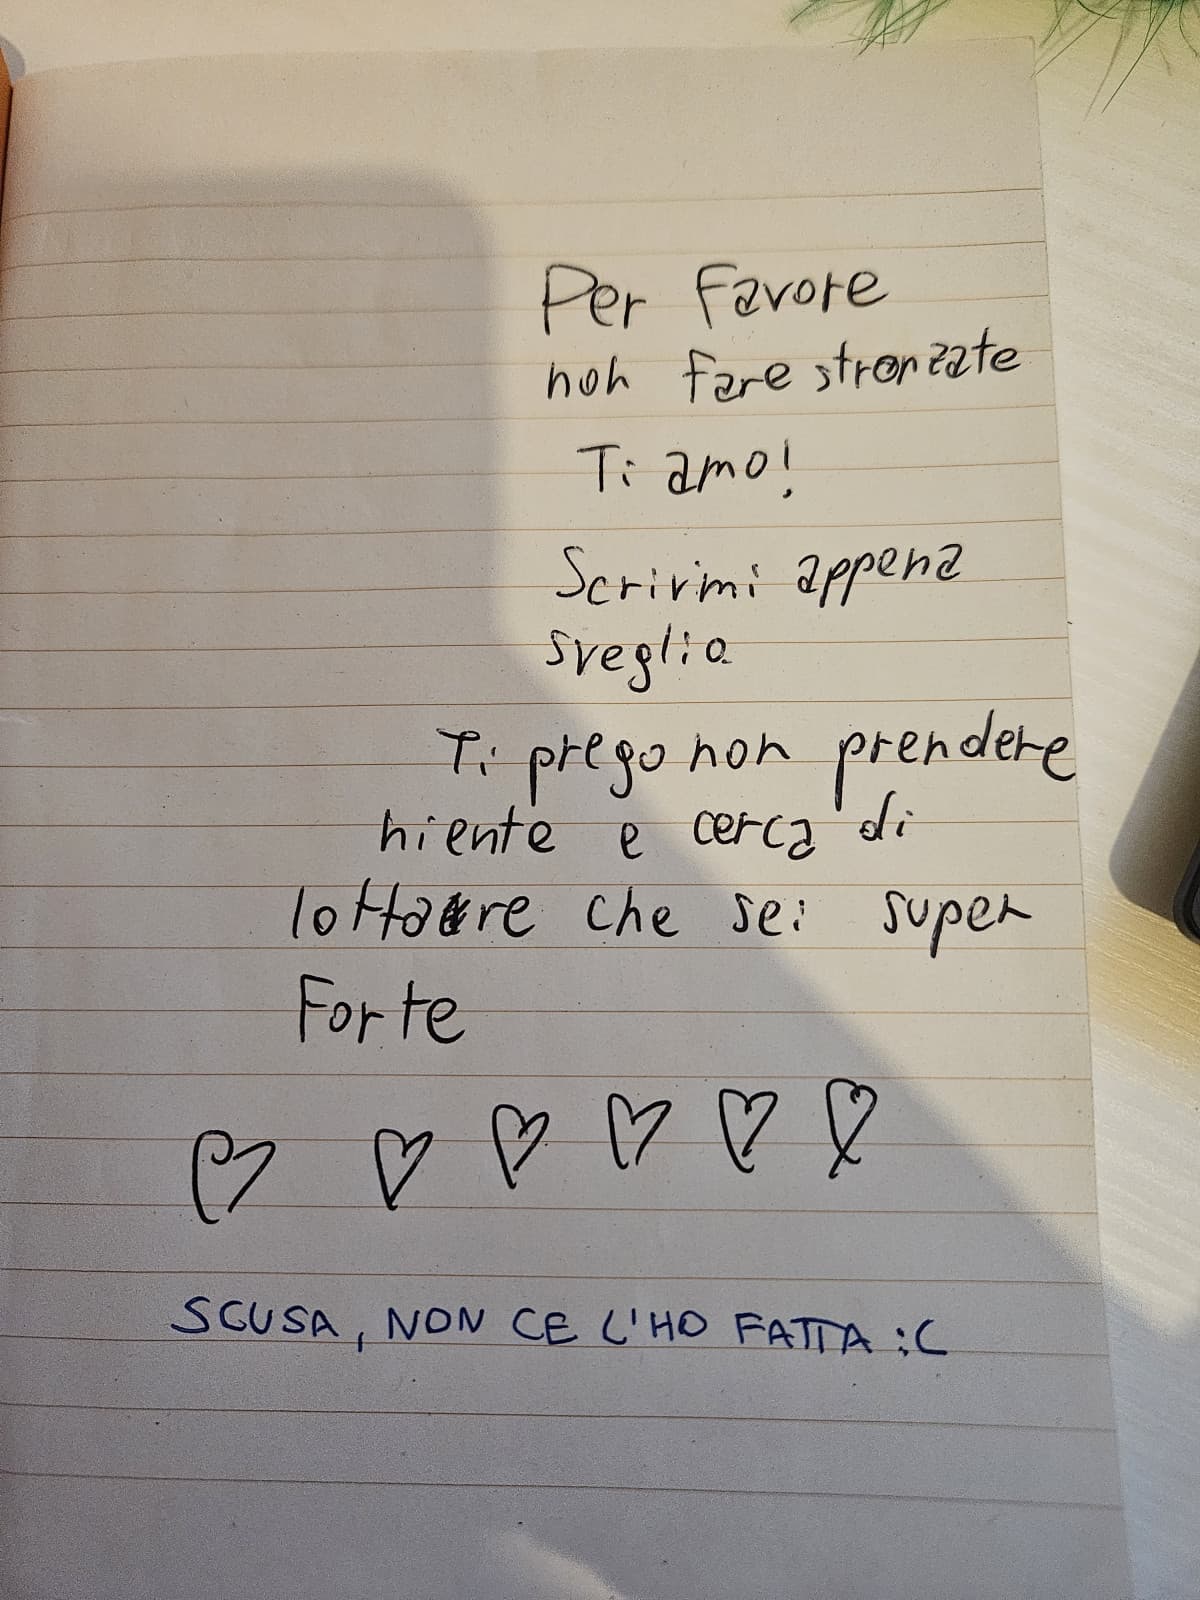 Per favore
non fare stronzate
Ti amo!
Scrivimi appena
sveglio
Ti prego non prendere
niente e cerca di
lottare che sei super
Forte
SCUSA, NON CE L'HO FATTA :C